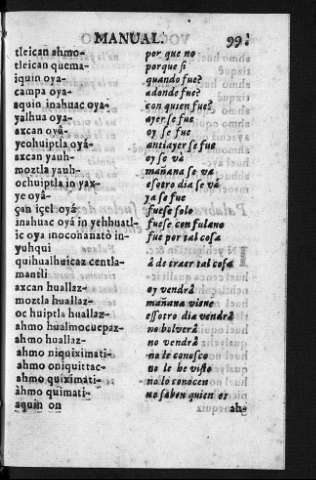 MANUAL. 99.
tleican ahmo- por que no
tleican quema- porque si
iquin oya- quando fue?
campa oya- adonde fue?
aquin inahuac oyá- con quien fue?
yalhua oya- ayer se fue
axcan oyá- oy se fue
yeohuiptla oyá- antiayer se fue
axcan yauh- oy se và
moztla yauh- mañana se va
ochuiptla in yax- essotro dia se vá
ye oyâ- ya se fue
çan içel oyá fuese solo
inahuac oyá in yehhuatl- fuese con fulano
ic oya inoconanatò in- fue por tal cosa
yuhqui
quihualhuicaz centla- á de traer tal cosa
mantli
axcan huallaz- oy vendrá
moztla huallaz- mañana viene
oc huiptla huallaz- essotro dia vendrá
ahmo hualmocuepaz- no bolverá
ahmo huallaz- no vendrá
ahmo niquiximati- no le conosco
ahmo oniquittac- no le he visto
ahmo quiximati- no lo conocen
àhmo quimati- no saben quien es
aquin on
ah-